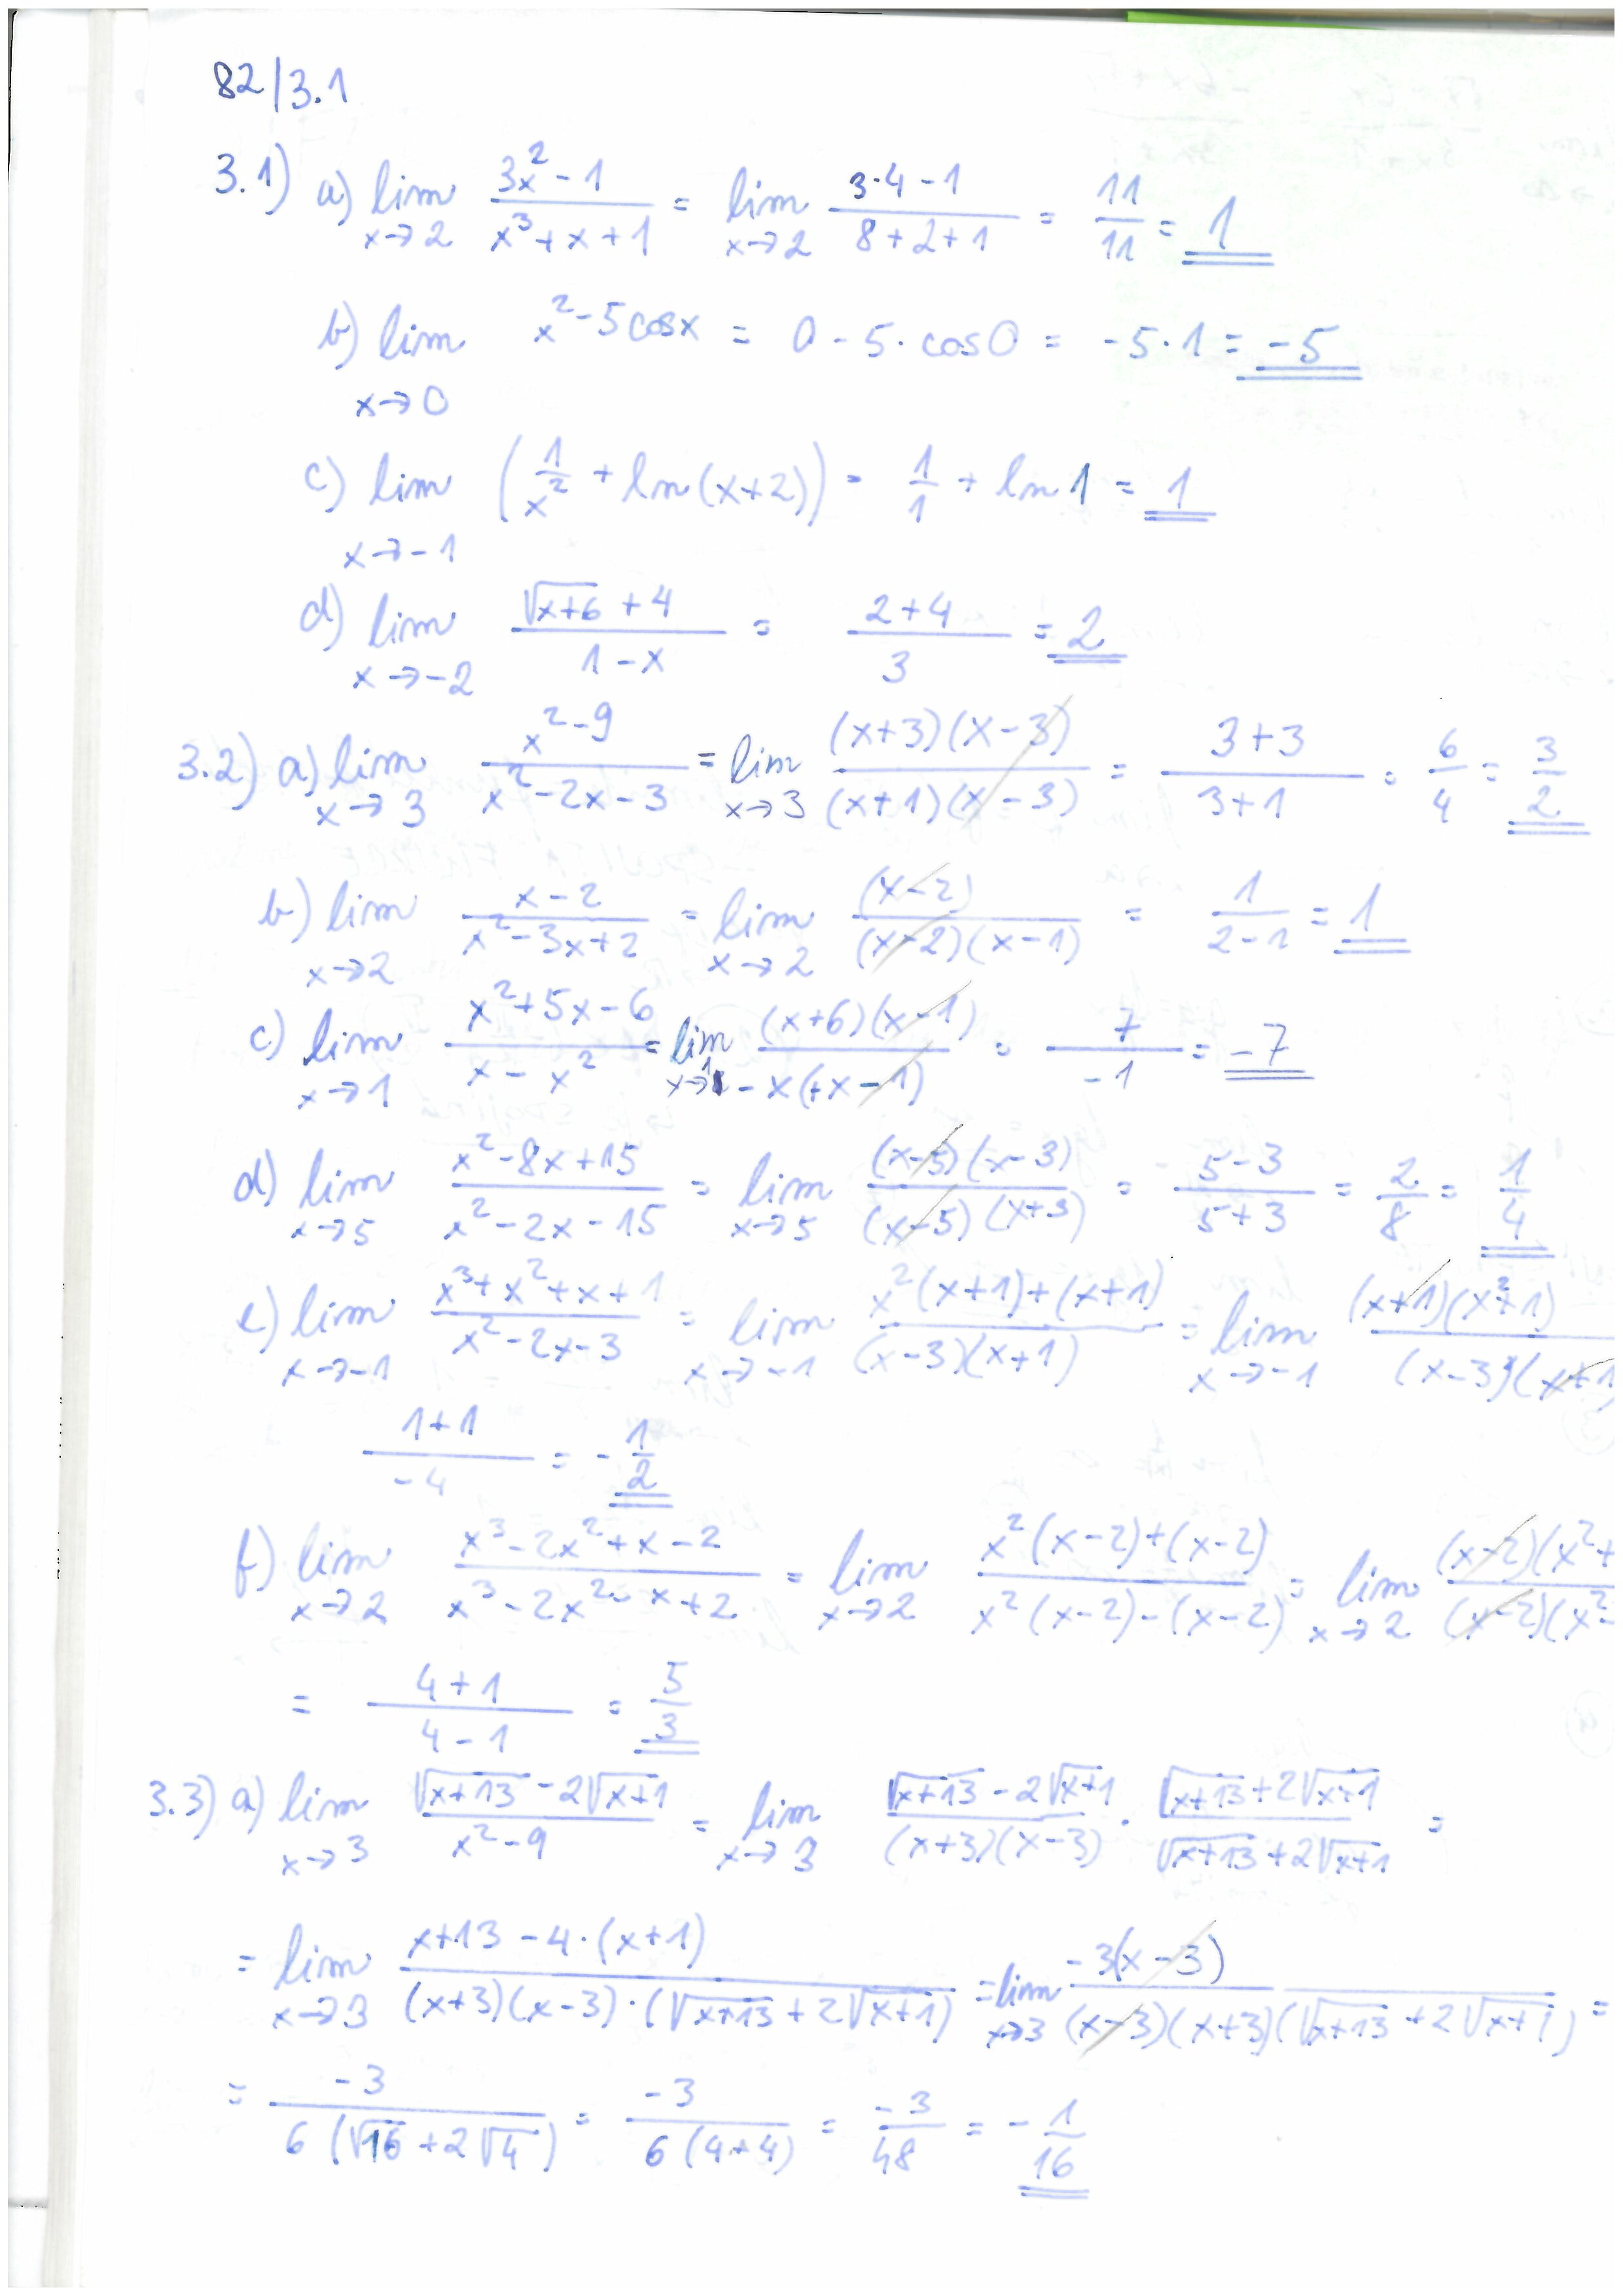 82/3.1
3.1) a) lim x→2 (3x² - 1)/(x³ + x + 1) = lim x→2 (3·4 - 1)/(8 + 2 + 1) = 11/11 = 1
b) lim x→0 x² - 5cosx = 0 - 5·cos0 = -5·1 = -5
c) lim x→-1 (1/x² + ln(x+2)) = 1/1 + ln1 = 1
d) lim x→-2 (√(x+6) + 4)/(1 - x) = (2+4)/3 = 2
3.2) a) lim x→3 (x² - 9)/(x² - 2x - 3) = lim x→3 (x+3)(x-3)/(x+1)(x-3) = (3+3)/(3+1) = 6/4 = 3/2
b) lim x→2 (x-2)/(x² - 3x + 2) = lim x→2 (x-2)/(x-2)(x-1) = 1/(2-1) = 1
c) lim x→1 (x² + 5x - 6)/(x - x²) = lim x→1 (x+6)(x-1)/-x(+x-1) = 7/-1 = -7
d) lim x→5 (x² - 8x + 15)/(x² - 2x - 15) = lim x→5 (x-5)(x-3)/(x-5)(x+3) = (5-3)/(5+3) = 2/8 = 1/4
e) lim x→-1 (x³ + x² + x + 1)/(x² - 2x - 3) = lim x→-1 (x²(x+1) + (x+1))/(x-3)(x+1) = lim x→-1 (x+1)(x²+1)/(x-3)(x+1
(1+1)/-4 = -1/2
f) lim x→2 (x³ - 2x² + x - 2)/(x³ - 2x² - x + 2) = lim x→2 (x²(x-2) + (x-2))/(x²(x-2) - (x-2)) = lim x→2 (x-2)(x²+/(x-2)(x²-
= (4+1)/(4-1) = 5/3
3.3) a) lim x→3 (√(x+13) - 2√(x+1))/(x² - 9) = lim x→3 (√(x+13) - 2√(x+1))/(x+3)(x-3) · (√(x+13) + 2√(x+1))/(√(x+13) + 2√(x+1)) =
= lim x→3 (x+13 - 4·(x+1))/(x+3)(x-3)·(√(x+13) + 2√(x+1)) = lim x→3 -3(x-3)/(x-3)(x+3)(√(x+13) + 2√(x+1)) =
= -3/6(√16 + 2√4) = -3/6(4+4) = -3/48 = -1/16